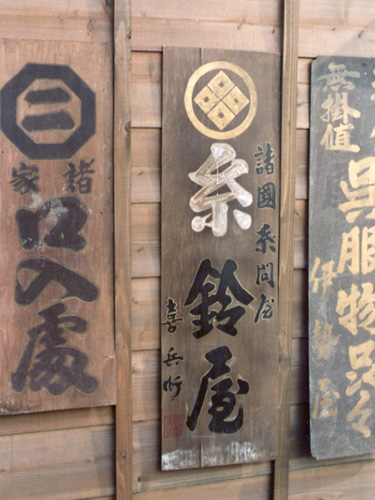 二
諸家
口入處
諸國糸問屋
糸鈴屋
喜兵衛
無掛値
呉服物品々
伊勢屋